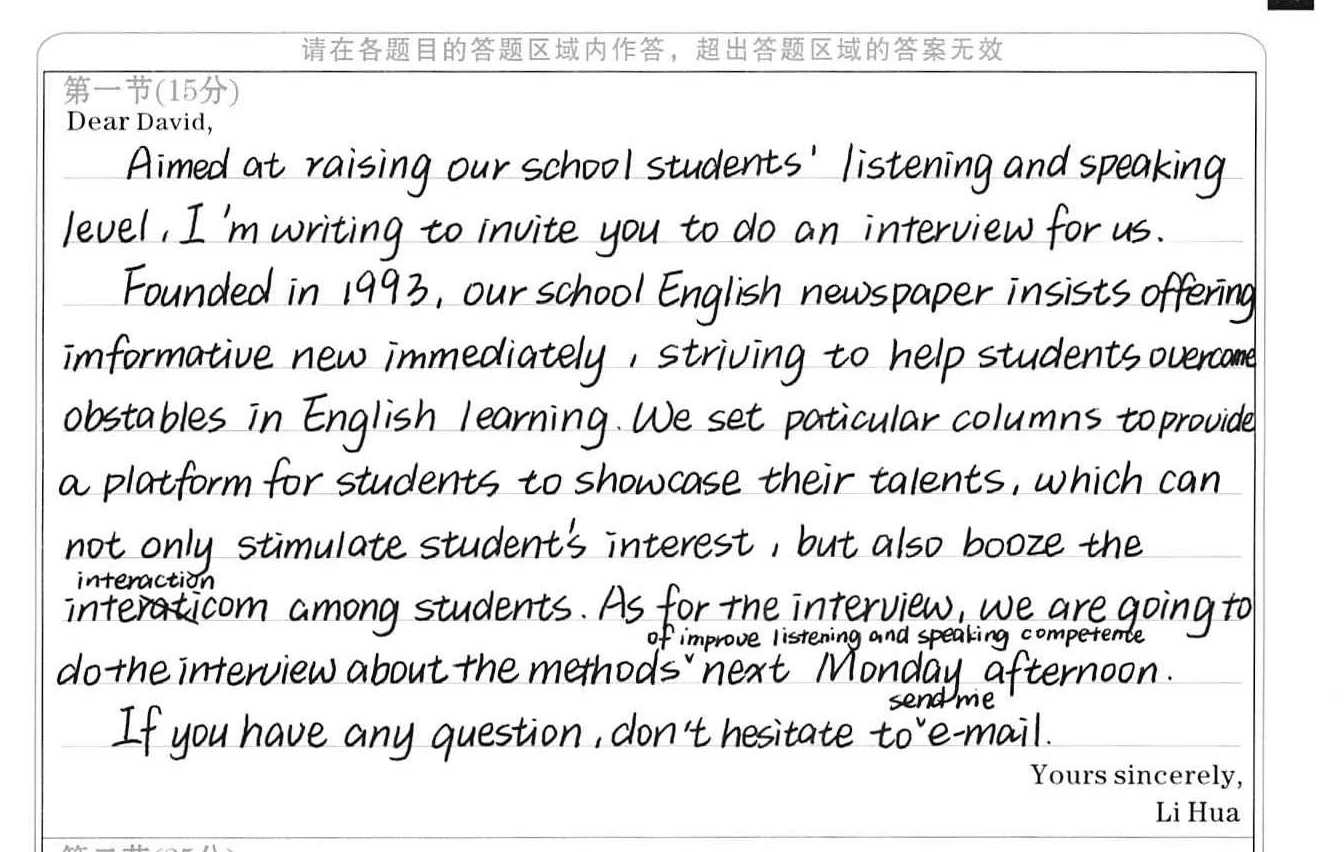 请在各题目的答题区域内作答，超出答题区域的答案无效
第一节(15分)
Dear David,
Aimed at raising our school students' listening and speaking
level, I'm writing to invite you to do an interview for us.
Founded in 1993, our school English newspaper insists offering
imformative new immediately, striving to help students overcome
obstables in English learning. We set paticular columns to provide
a platform for students to showcase their talents, which can
not only stimulate student's interest, but also booze the
interaction
among students. As for the interview, we are going to
of improve listening and speaking competente
do the interview about the methods next Monday afternoon.
send me
If you have any question, don't hesitate to e-mail.
Yours sincerely,
Li Hua